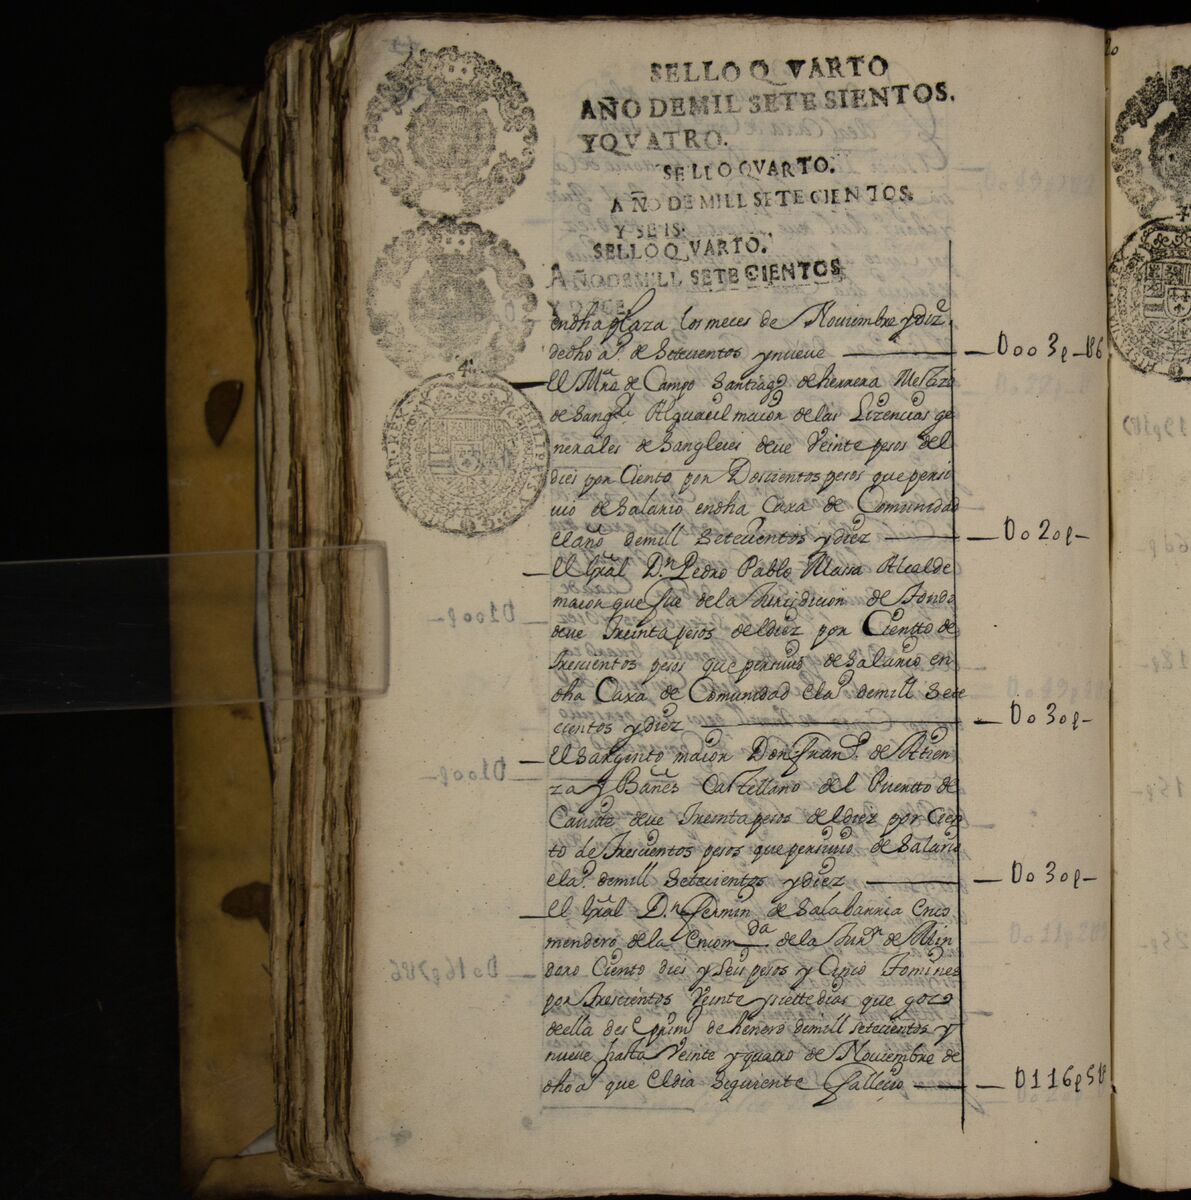 SELLO QVARTO
AÑO DE MIL SETE SIENTOS.
Y QVATRO.
SELLO QVARTO.
AÑO DE MILL SETECIENTOS
Y SEIS.
SELLO QVARTO.
AÑO DE MILL SETECIENTOS
Y DOCE.
en dha plaza los meces de Noviembre y diz.
de dho aº. de Setecientos y nueve — D003p_
El Mrõ de Campo Santiagº de herrera Mestizo
de Sangˡ. Alguacil maior de las Lizencias ge
nerales de Sangleies deue Veinte pesos del
dies por Ciento por Doscientos pesos que persi
uio de Salario en dha Caxa de Comunidad
el año de mill Setecientos y diez — D020p_
El Gral Dⁿ Pedro Pablo Masa Alcalde
maior que fue de la Jurisdicion de Tondo
deue treinta pesos del diez por Cientto de
trescientos pesos que persiuio de Salario en
dha Caxa de Comunidad el aº. de mill Sete
cientos y diez — D030p_
El Sargento maior Don Franº. de Atien
za y Bañes Castellano del Puertto de
Cauite deue treinta pesos del diez por Cien
to de trescientos pesos que persiuio de Salario
el aº. de mill Setecientos y diez — D030p_
El Gral Dⁿ Fermin de Salabarria Enco
mendero de la Encomda de la Jurⁿ de Min
doro Ciento dies y Seis pesos y Cinco tomines
por trescientos Veinte y siette dias que gozo
de ella des de prim de henero de mill setecientos y
nueue hasta Veinte y quatro de Nouiembre de
dho aº que el dia Siguiente fallecio — D116p5